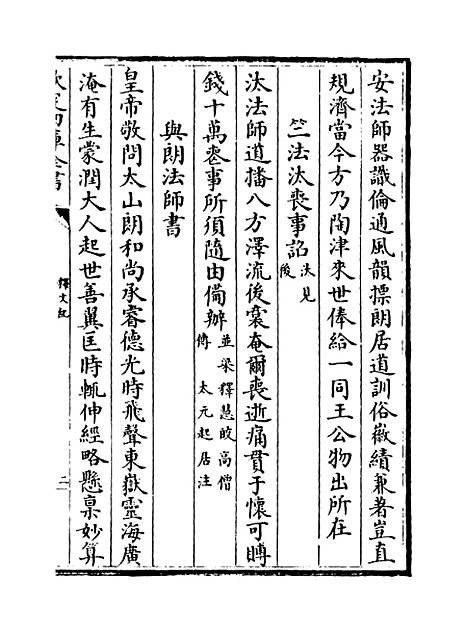 安法師器識倫通風韻摽朗居道訓俗徽績兼著豈直
規濟當今方乃陶津來世俸給一同王公物出所在
竺法汰喪事詔汰見後
汰法師道播八方澤流後裔奄爾喪逝痛貫于懷可賻
錢十萬喪事所須隨由備辦並梁釋慧皎高僧傳 太元起居注
與朗法師書
皇帝敬問太山朗和尚承睿德光時飛聲東嶽靈海廣
淹有生蒙潤大人起世善翼匡時輒伸經略懸稟妙算
欽定四庫全書
釋文紀
二